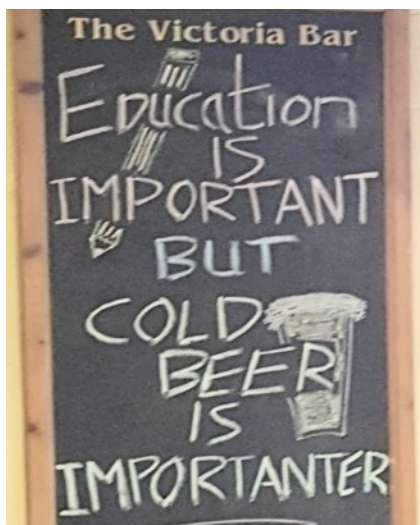 The Victoria Bar
EDUcation
IS
IMPORTANT
BUT
COLD
BEER
IS
IMPORTANTER